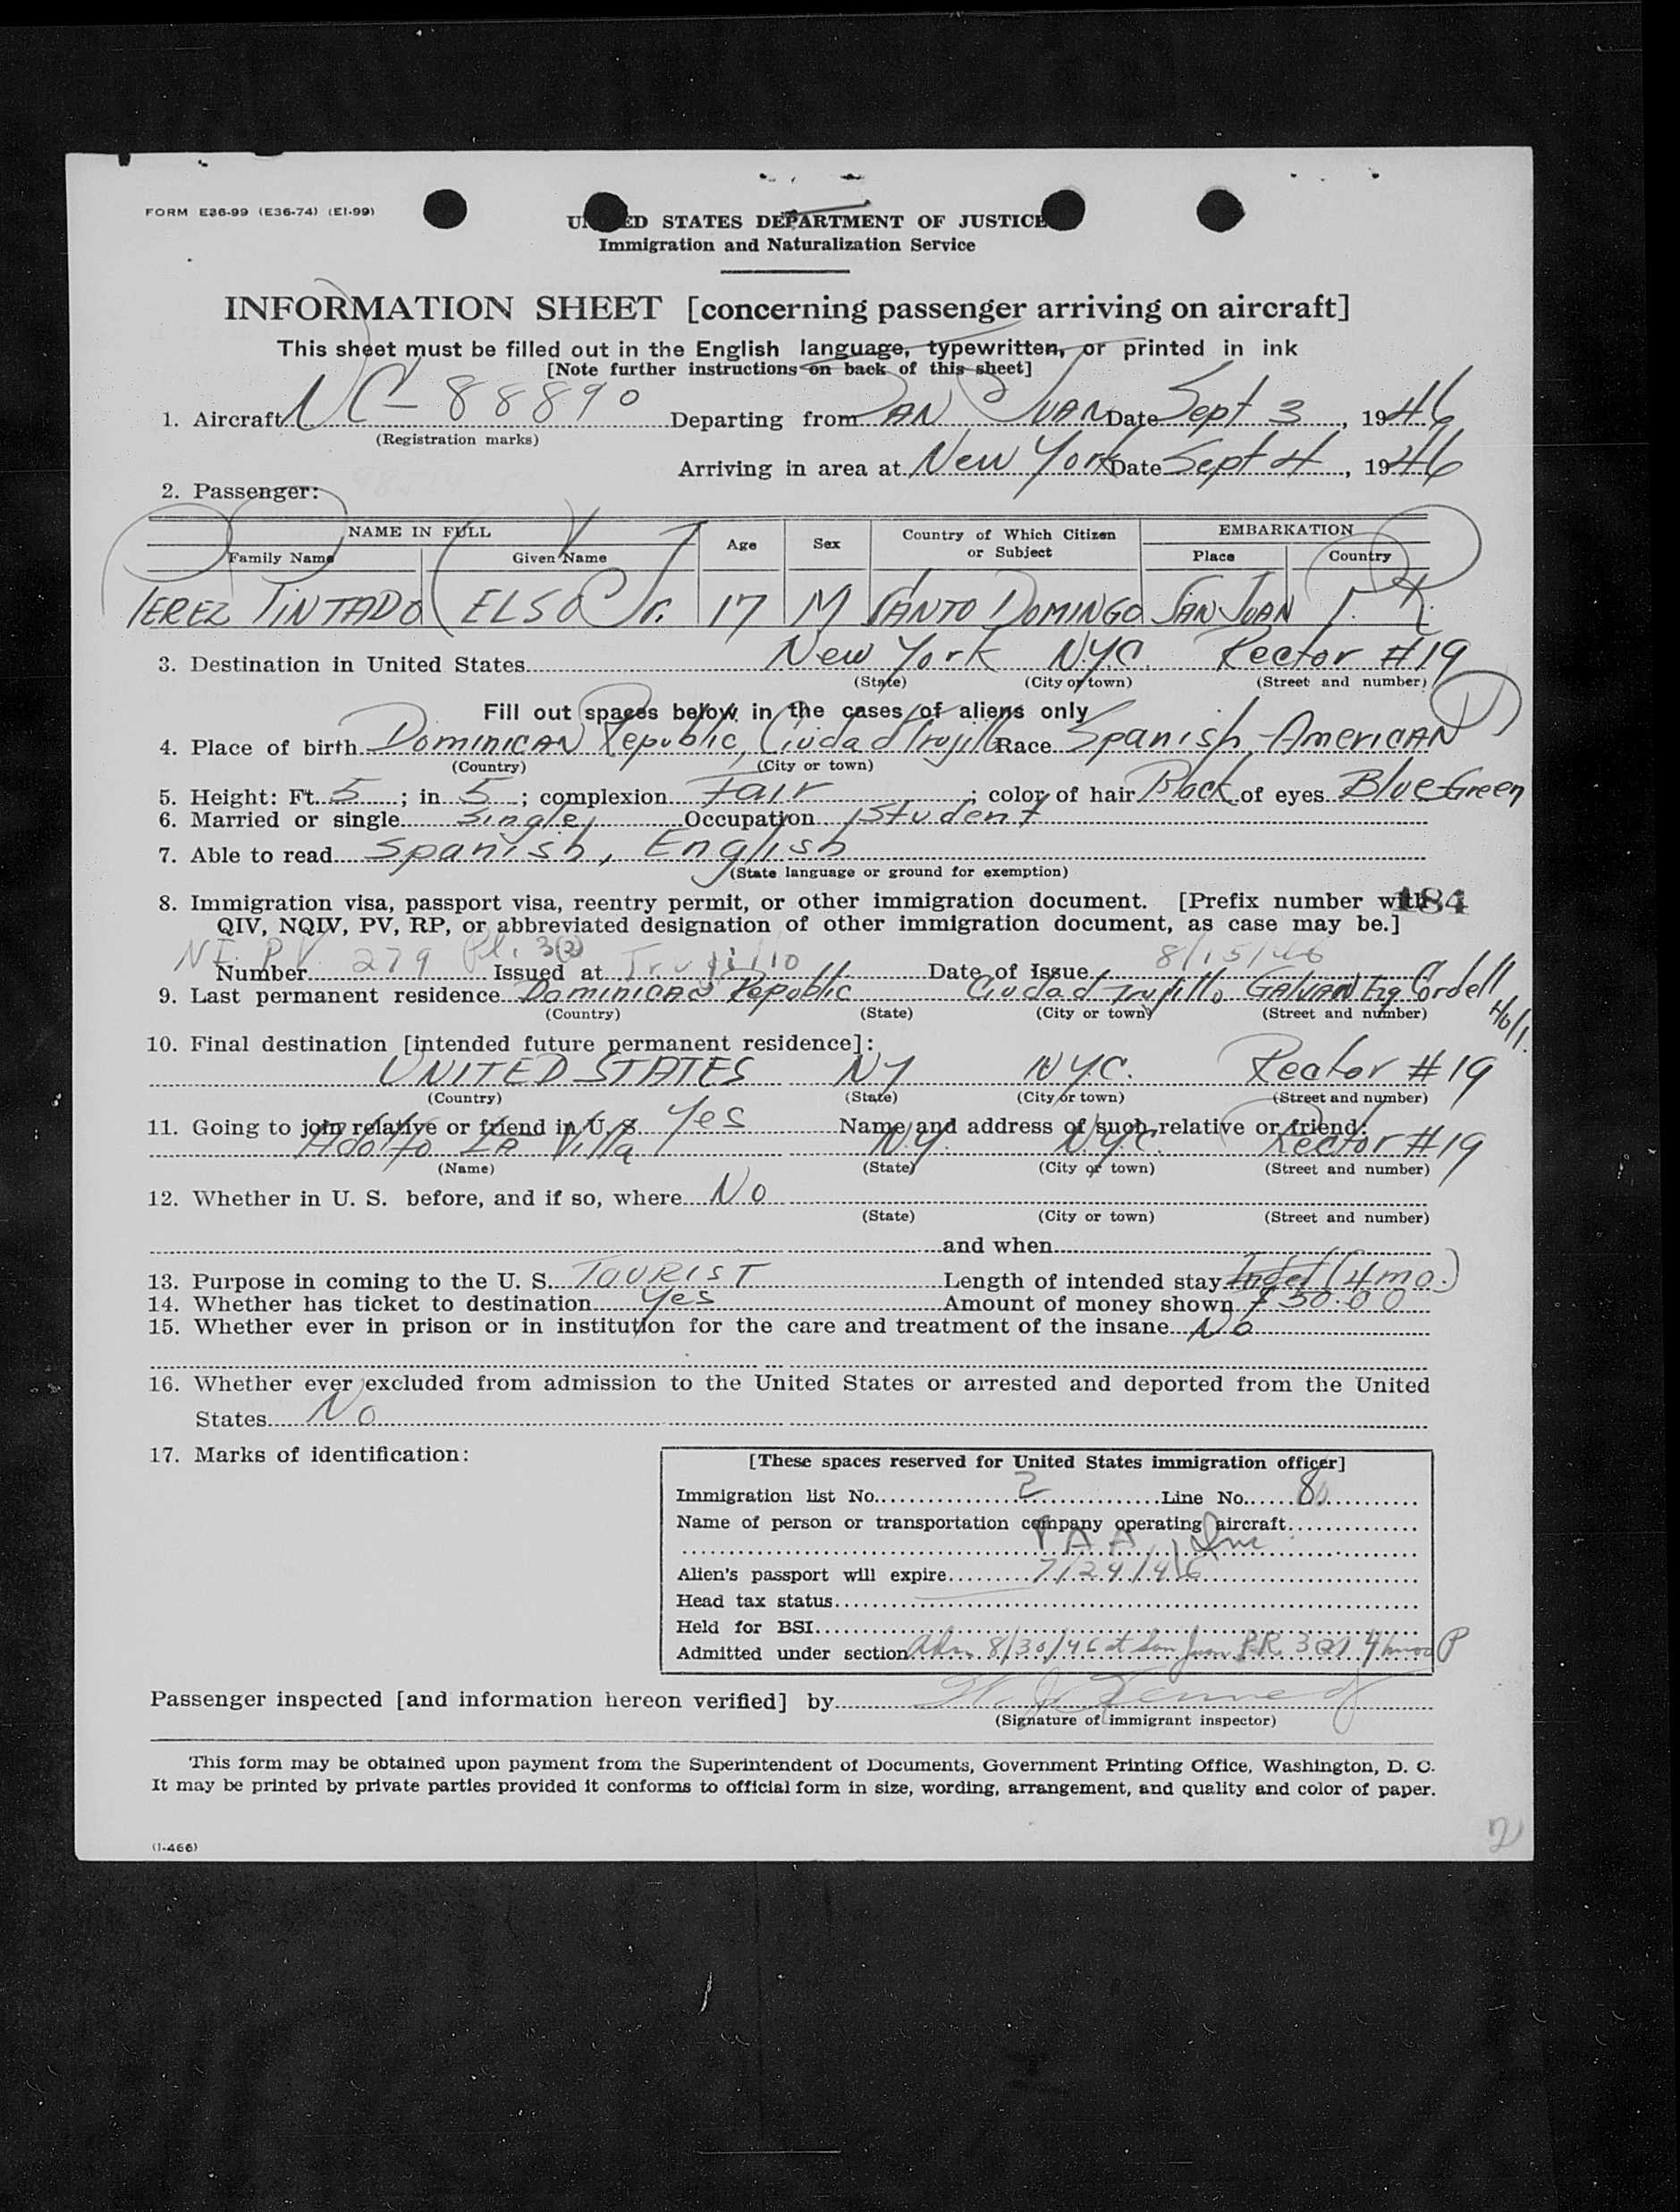 FORM E36-99 (E36-74) (E1-99)
UNITED STATES DEPARTMENT OF JUSTICE
Immigration and Naturalization Service
INFORMATION SHEET [concerning passenger arriving on aircraft]
This sheet must be filled out in the English language, typewritten, or printed in ink
[Note further instructions on back of this sheet]
1. Aircraft NC-88890 Departing from SAN JUAN Date Sept 3, 1946
(Registration marks)
Arriving in area at New York Date Sept 4, 1946
2. Passenger:
NAME IN FULL Age Sex Country of Which Citizen or Subject EMBARKATION
Family Name Given Name Place Country
PEREZ PINTADO ELSO Jr. 17 M SANTO DOMINGO SAN JUAN P.R.
3. Destination in United States New York N.Y.C. Rector #19
(State) (City or town) (Street and number)
Fill out spaces below in the cases of aliens only
4. Place of birth Dominican Republic, Ciudad Trujillo Race Spanish-American
(Country) (City or town)
5. Height: Ft. 5; in 5; complexion Fair; color of hair Black of eyes Blue-Green
6. Married or single Single Occupation Student
7. Able to read Spanish, English
(State language or ground for exemption)
8. Immigration visa, passport visa, reentry permit, or other immigration document. [Prefix number with 184
QIV, NQIV, PV, RP, or abbreviated designation of other immigration document, as case may be.]
Number P.V. 279 3(2) Issued at Trujillo Date of Issue 8/15/46
9. Last permanent residence Dominican Republic Ciudad Trujillo GALVAN Esq Cordell Hull.
(Country) (State) (City or town) (Street and number)
10. Final destination [intended future permanent residence]:
UNITED STATES NY NYC. Rector #19
(Country) (State) (City or town) (Street and number)
11. Going to join relative or friend in U. S. Yes Name and address of such relative or friend:
Adolfo La Villa N.Y. N.Y.C. Rector #19
(Name) (State) (City or town) (Street and number)
12. Whether in U. S. before, and if so, where No
(State) (City or town) (Street and number)
and when
13. Purpose in coming to the U. S. TOURIST Length of intended stay Indef (4 mo.)
14. Whether has ticket to destination Yes Amount of money shown $ 30.00
15. Whether ever in prison or in institution for the care and treatment of the insane No
16. Whether ever excluded from admission to the United States or arrested and deported from the United
States No
17. Marks of identification:
[These spaces reserved for United States immigration officer]
Immigration list No. 2 Line No. 8
Name of person or transportation company operating aircraft
PAA Inc
Alien's passport will expire 7/24/46
Head tax status
Held for BSI
Admitted under section Adm 8/30/46 at San Juan P.R. 3(2) 4 mos P
Passenger inspected [and information hereon verified] by
(Signature of immigrant inspector)
This form may be obtained upon payment from the Superintendent of Documents, Government Printing Office, Washington, D. C.
It may be printed by private parties provided it conforms to official form in size, wording, arrangement, and quality and color of paper.
(1-466)
2